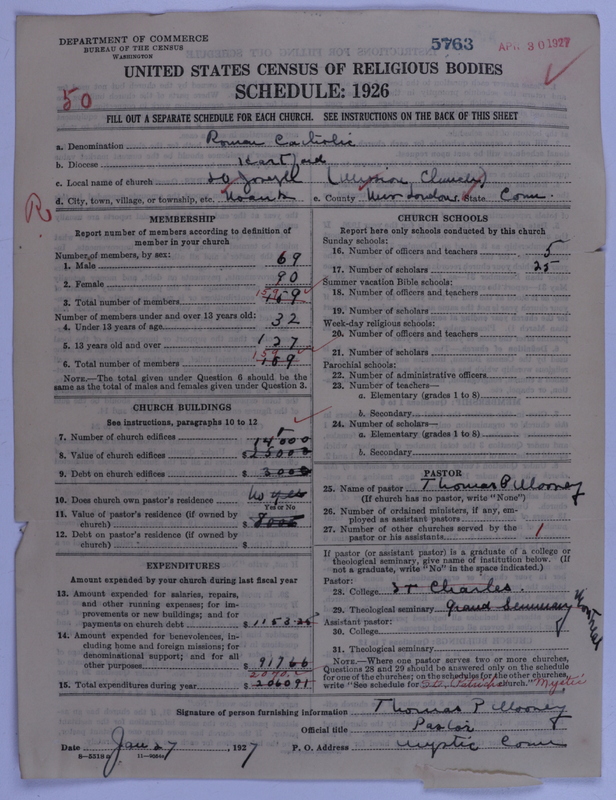 DEPARTMENT OF COMMERCE
BUREAU OF THE CENSUS
WASHINGTON
5763
APR 30 1927
UNITED STATES CENSUS OF RELIGIOUS BODIES
SCHEDULE: 1926
50
FILL OUT A SEPARATE SCHEDULE FOR EACH CHURCH. SEE INSTRUCTIONS ON THE BACK OF THIS SHEET
a. Denomination Roman Catholic
b. Diocese Hartford
c. Local name of church St Joseph (Mission Church)
d. City, town, village, or township, etc. Noank e. County New London f. State Conn.
R
MEMBERSHIP
Report number of members according to definition of
member in your church
Number of members, by sex:
1. Male 69
2. Female 90
3. Total number of members 159
Number of members under and over 13 years old:
4. Under 13 years of age 32
5. 13 years old and over 127
6. Total number of members 159
NOTE.—The total given under Question 6 should be the
same as the total of males and females given under Question 3.
CHURCH BUILDINGS
See instructions, paragraphs 10 to 12
7. Number of church edifices 1
8. Value of church edifices $ 14000
9. Debt on church edifices $ 3000
10. Does church own pastor's residence No yes
Yes or No
11. Value of pastor's residence (if owned by
church) $ 8000
12. Debt on pastor's residence (if owned by
church) $
EXPENDITURES
Amount expended by your church during last fiscal year
13. Amount expended for salaries, repairs,
and other running expenses; for im-
provements or new buildings; and for
payments on church debt $ 1153.25
14. Amount expended for benevolences, in-
cluding home and foreign missions; for
denominational support; and for all
other purposes $ 91766
15. Total expenditures during year $ 206091
CHURCH SCHOOLS
Report here only schools conducted by this church
Sunday schools:
16. Number of officers and teachers 5
17. Number of scholars 25
Summer vacation Bible schools:
18. Number of officers and teachers
19. Number of scholars
Week-day religious schools:
20. Number of officers and teachers
21. Number of scholars
Parochial schools:
22. Number of administrative officers
23. Number of teachers—
a. Elementary (grades 1 to 8)
b. Secondary
24. Number of scholars—
a. Elementary (grades 1 to 8)
b. Secondary
PASTOR
25. Name of pastor Thomas P Mooney
(If church has no pastor, write "None")
26. Number of ordained ministers, if any, em-
ployed as assistant pastors
27. Number of other churches served by the
pastor or his assistants 1
If pastor (or assistant pastor) is a graduate of a college or
theological seminary, give name of institution below. (If
not a graduate, write "No" in the space indicated.)
Pastor:
28. College St Charles
29. Theological seminary Grand Seminary Montreal
Assistant pastor:
30. College
31. Theological seminary
NOTE.—Where one pastor serves two or more churches,
Questions 28 and 29 should be answered only on the schedule
for one of the churches; on the schedules for the other churches,
write "See schedule for St. Patricks church." Mystic
Signature of person furnishing information Thomas P Mooney
Official title Pastor
Date Jan 27, 1927 P. O. Address Mystic Conn
8—5518a